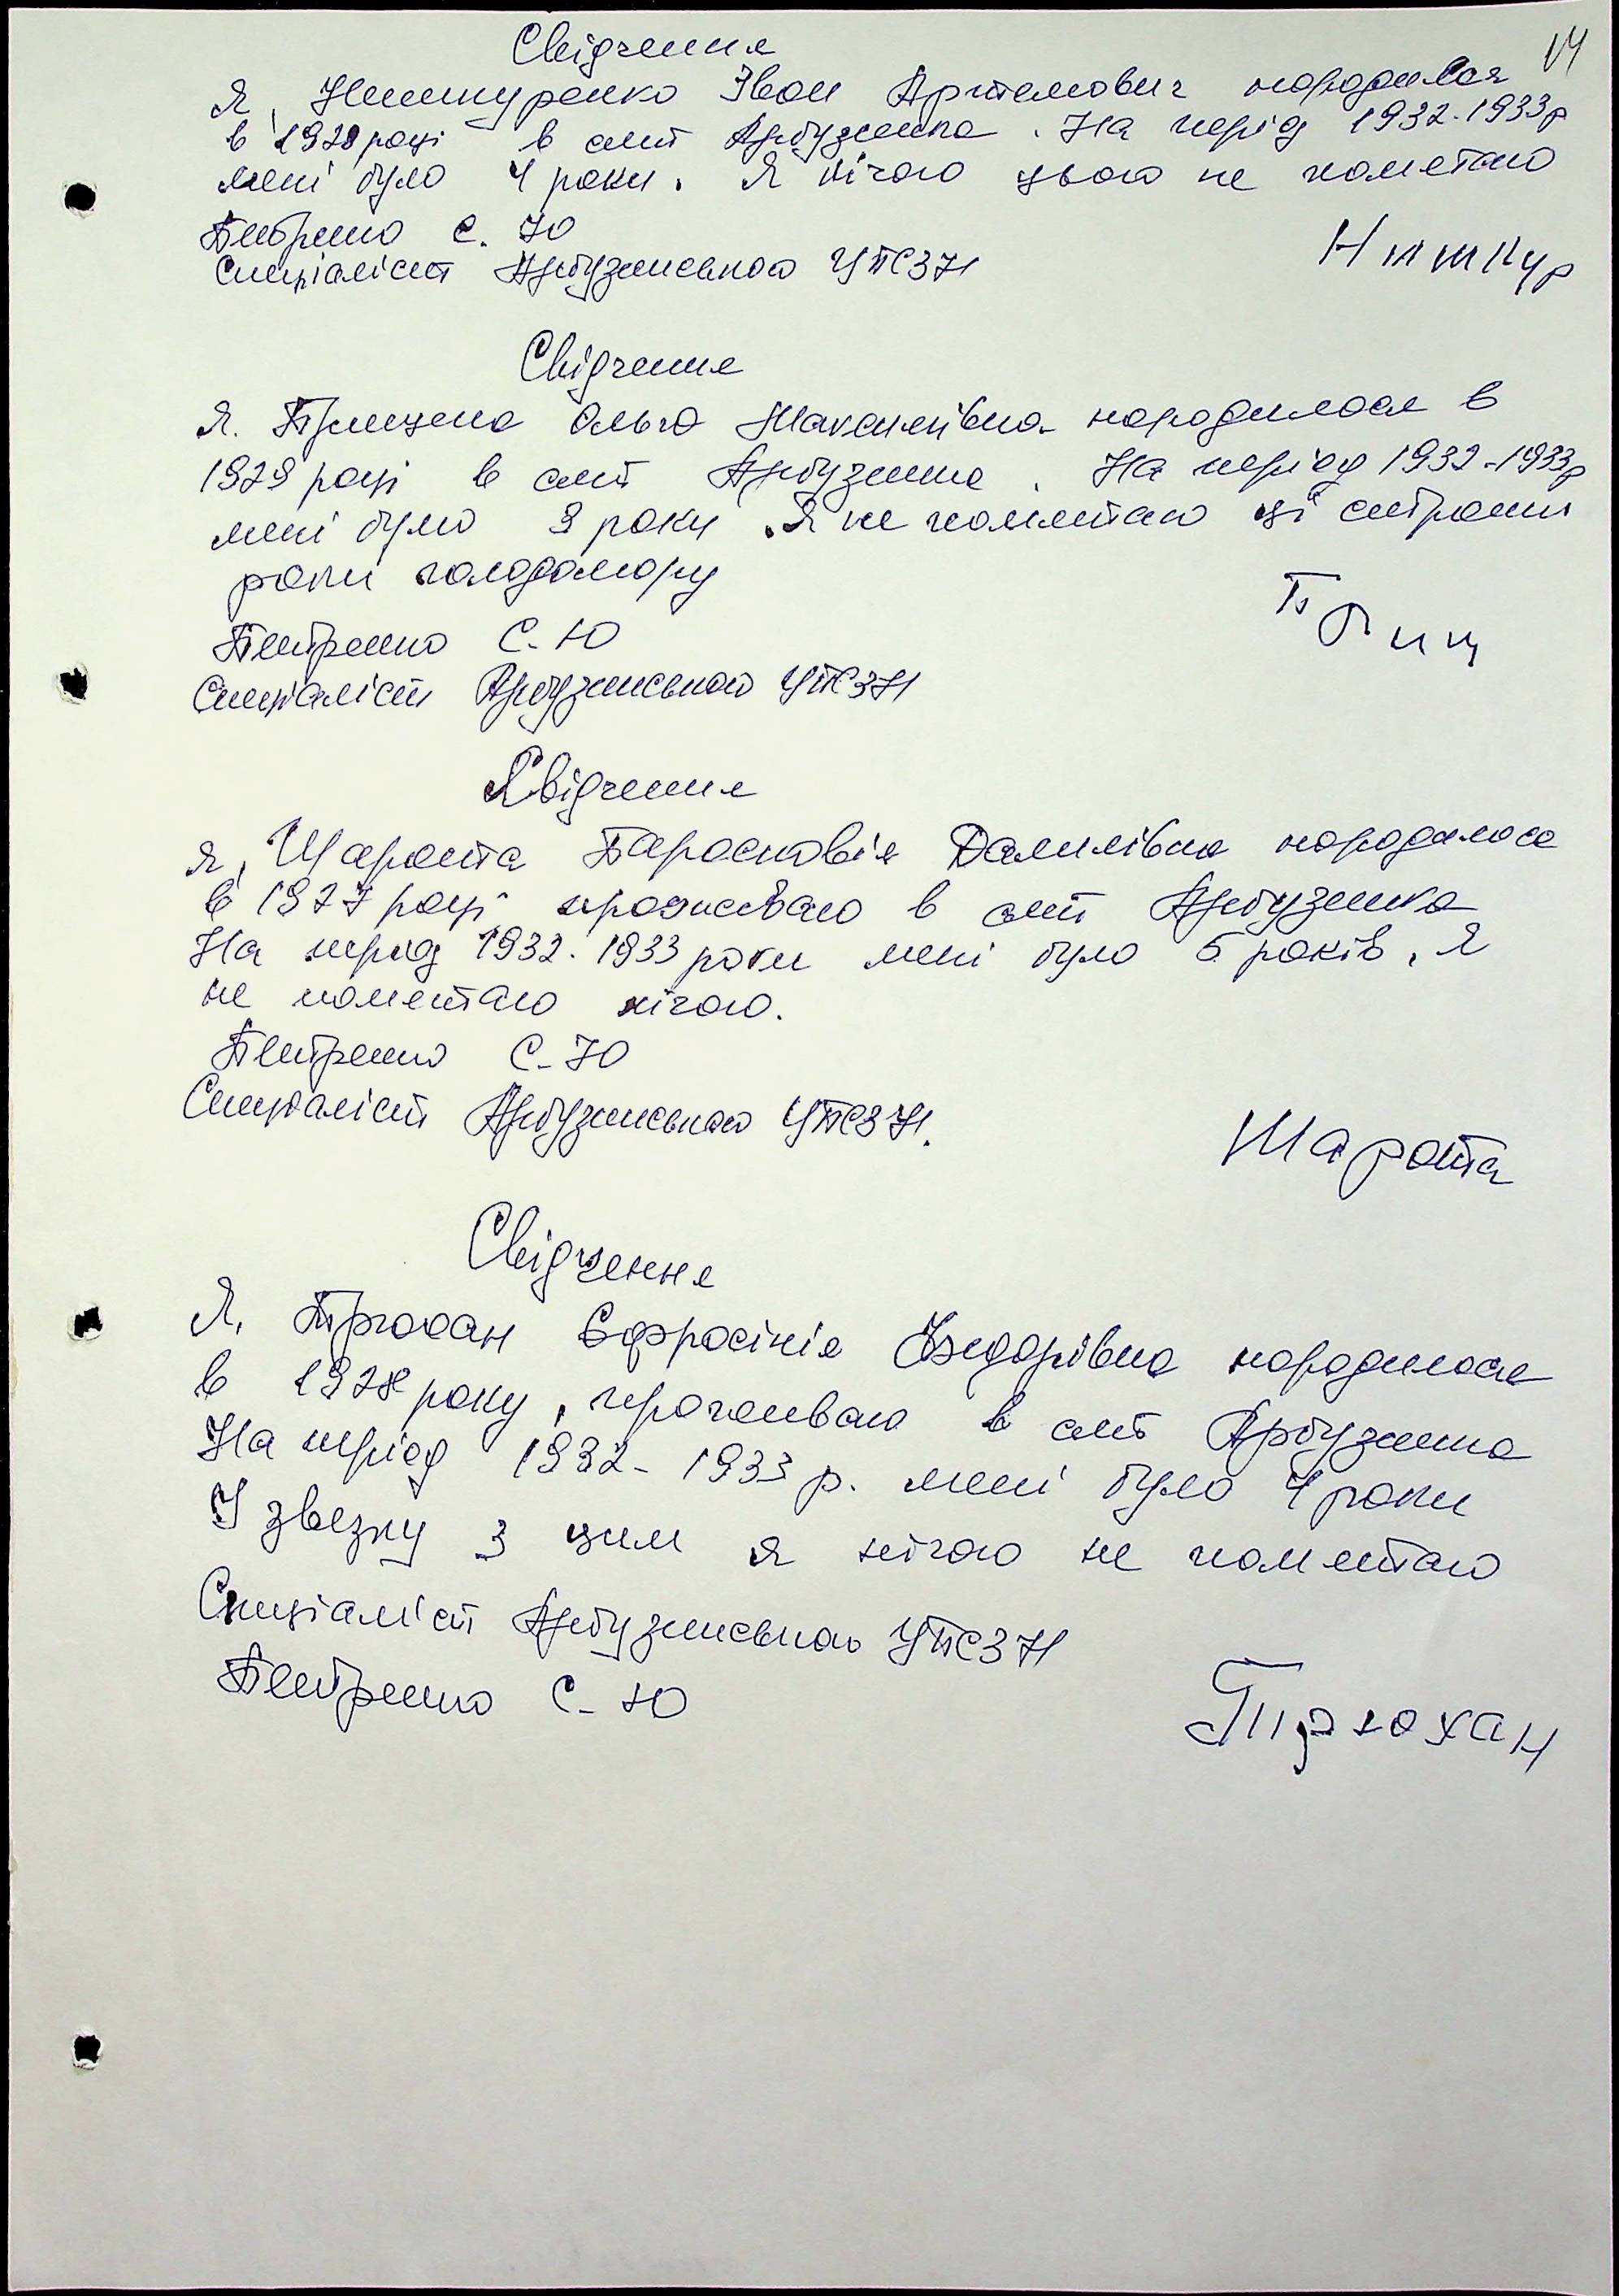 14
Свідчення
Я, Нишкуренко Іван Артемович народився
в 1928 році в смт Арбузинка. На період 1932-1933 р
мені було 4 роки. Я нічого цього не пометаю
Петренко С. Ю
Спеціаліст Арбузинського УПСЗН
Свідчення
Я. Ольга Максимівна народилася в
1929 році в смт Арбузинка. На період 1932-1933 р
мені було 3 року. Я не пометаю ці страшні
роки голодомору
Петренко С. Ю
Спеціаліст Арбузинського УПСЗН
Свідчення
Я, Шарота Парасковія Данилівна народилася
в 1927 році проживаю в смт Арбузинка
На період 1932-1933 роки мені було 5 років, я
не пометаю нічого.
Петренко С. Ю
Спеціаліст Арбузинського УПСЗН.
Шарота
Свідчення
Я, Трюхан Єфросінія народилася
в 1928 року, проживаю в смт Арбузинка
На період 1932-1933 р. мені було 4 роки
У звезку з цим я нічого не пометаю
Спеціаліст Арбузинського УПСЗН
Петренко С. Ю
Трюхан